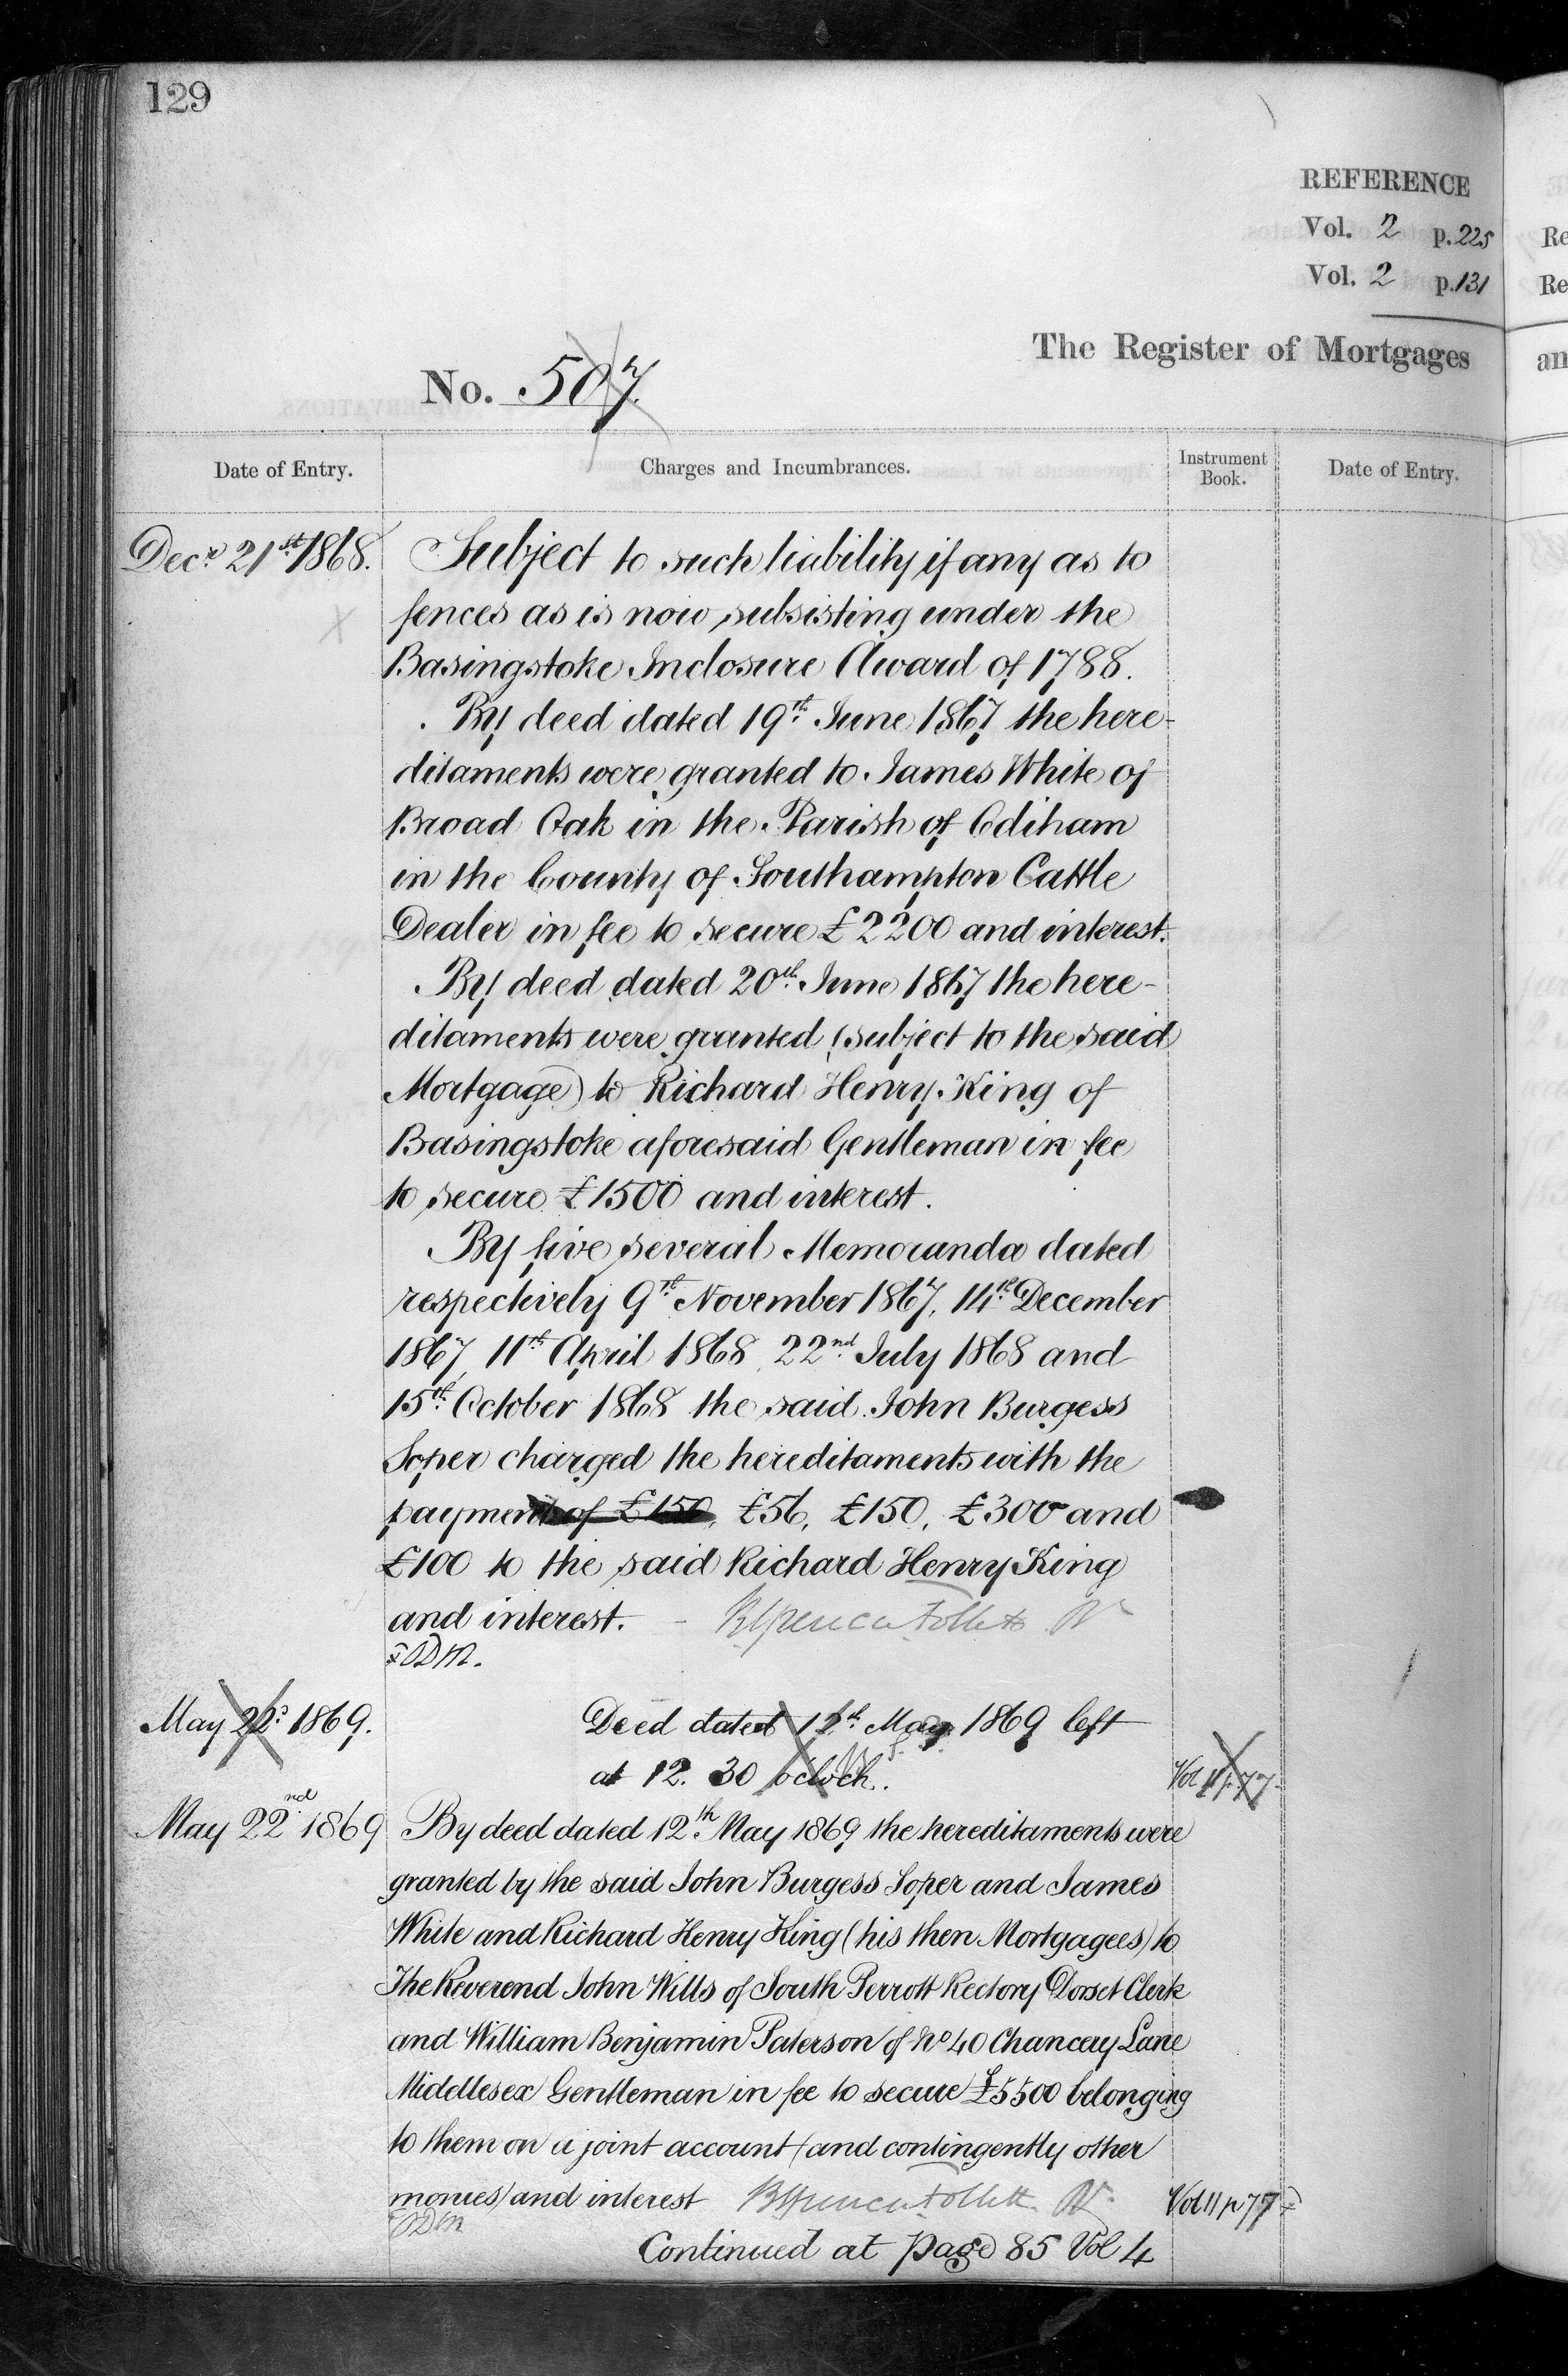 129
REFERENCE
Vol. 2 p.225
Vol. 2 p.131
The Register of Mortgages
No. 507.
Date of Entry.
Charges and Incumbrances.
Instrument Book.
Date of Entry.
Decr. 21st. 1868.
Subject to such liability if any as to
fences as is now subsisting under the
Basingstoke Inclosure Award of 1788.
By deed dated 19th. June 1867 the here-
ditaments were granted to James White of
Broad Oak in the Parish of Odiham
in the County of Southampton Cattle
Dealer in fee to secure £2200 and interest.
By deed dated 20th. June 1867 the here-
ditaments were granted (subject to the said
Mortgage) to Richard Henry King of
Basingstoke aforesaid Gentleman in fee
to secure £1500 and interest.
By five several Memoranda dated
respectively 9th. November 1867, 14th. December
1867, 11th. April 1868, 22nd. July 1868 and
15th. October 1868 the said John Burgess
Soper charged the hereditaments with the
payment of £150, £56, £150, £300 and
£100 to the said Richard Henry King
and interest.
May 22d. 1869.
Deed dated 12th. May 1869 left
at 12. 30 oclock.
Vol 11 p. 77.
May 22nd. 1869
By deed dated 12th. May 1869 the hereditaments were
granted by the said John Burgess Soper and James
White and Richard Henry King (his then Mortgagees) to
The Reverend John Wills of South Perrott Rectory Dorset Clerk
and William Benjamin Paterson of No 40 Chancery Lane
Middlesex Gentleman in fee to secure £5500 belonging
to them on a joint account (and contingently other
monies) and interest
Vol 11 p 77
Continued at page 85 Vol 4
Re
Re
an